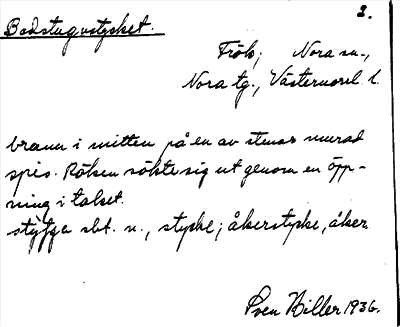 2.
Badstugustycket.
Fröks; Nora sn.,
Nora tg., Västernorrl. l.
brann i mitten på en av stenar murad
spis. Röken sökte sig ut genom en öpp-
ning i taket.
sbt. n., stycke; åkerstycke, åker
Sven Hiller 1936.